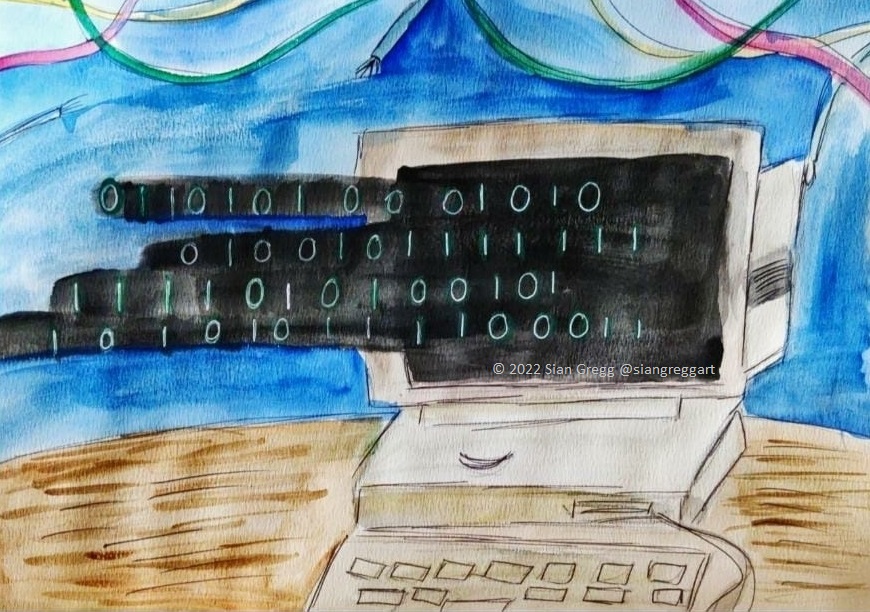 0 1 1 0 1 0 1 0 0 0 1 0 1 0
0 1 0 0 1 0 1 1 1 1 1 1 1
1 1 1 1 0 1 0 1 0 0 1 0 1
1 0 1 0 1 0 1 1 1 1 0 0 0 1 1
© 2022 Sian Gregg @siangreggart